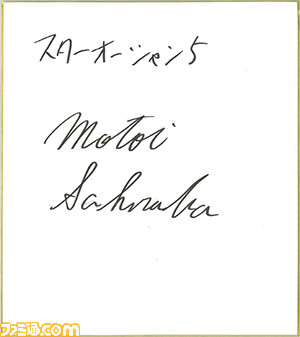 スターオーシャン5
Motoi
Sakuraba
ファミ通.com